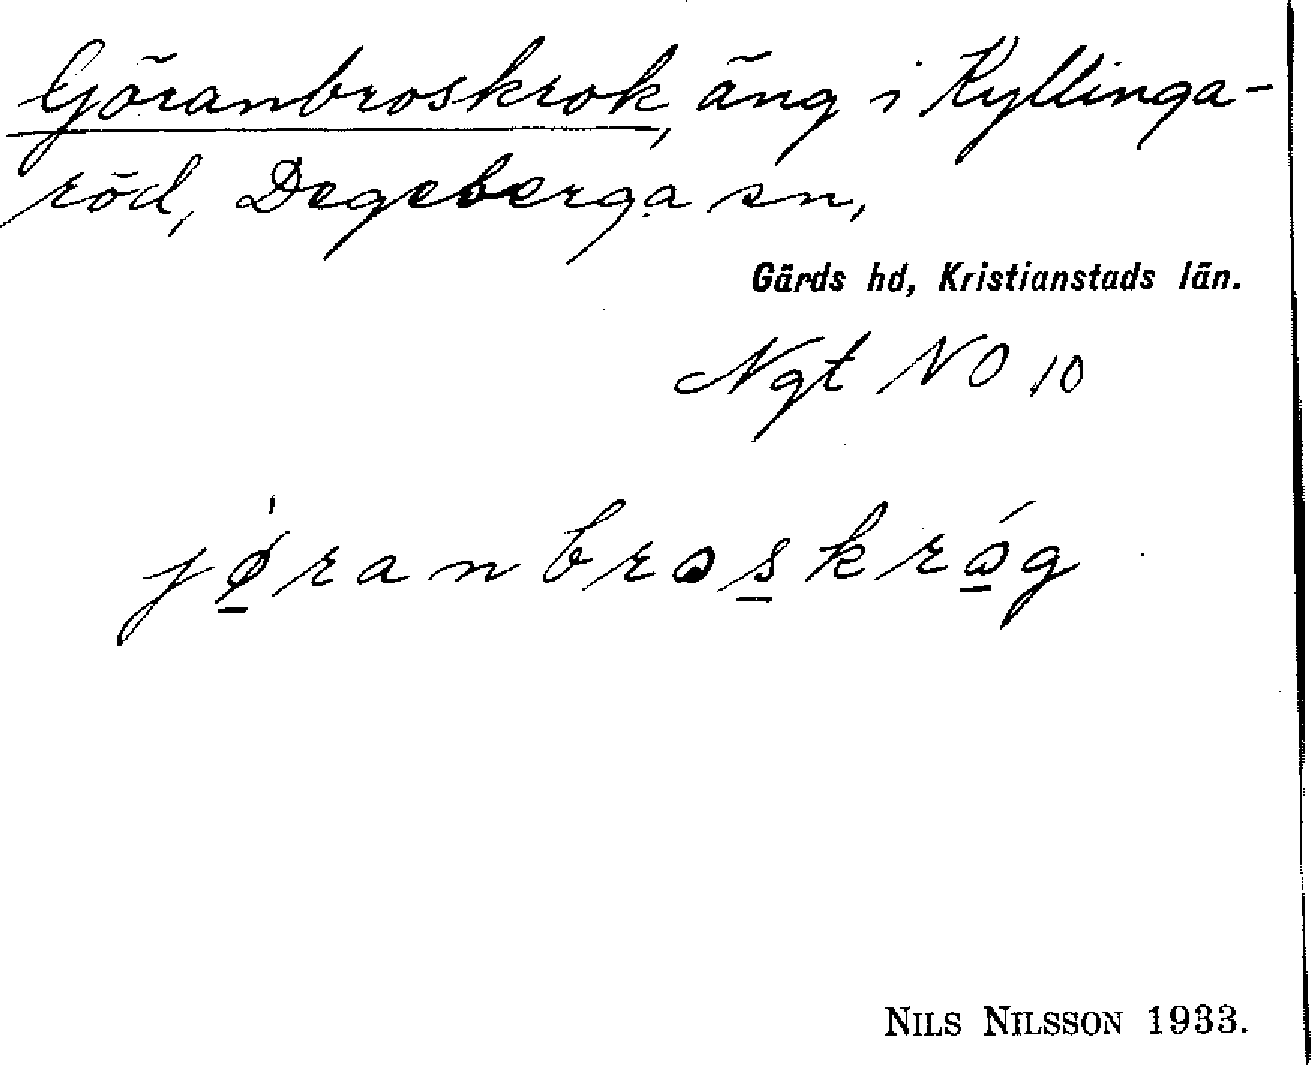 Göranbroskrok, äng i Kyllinga-
röd, Degeberga sn,
Gärds hd, Kristianstads län.
Ngt NO 10
jǿ̱ranbros̱krǿ̱g
NILS NILSSON 1933.